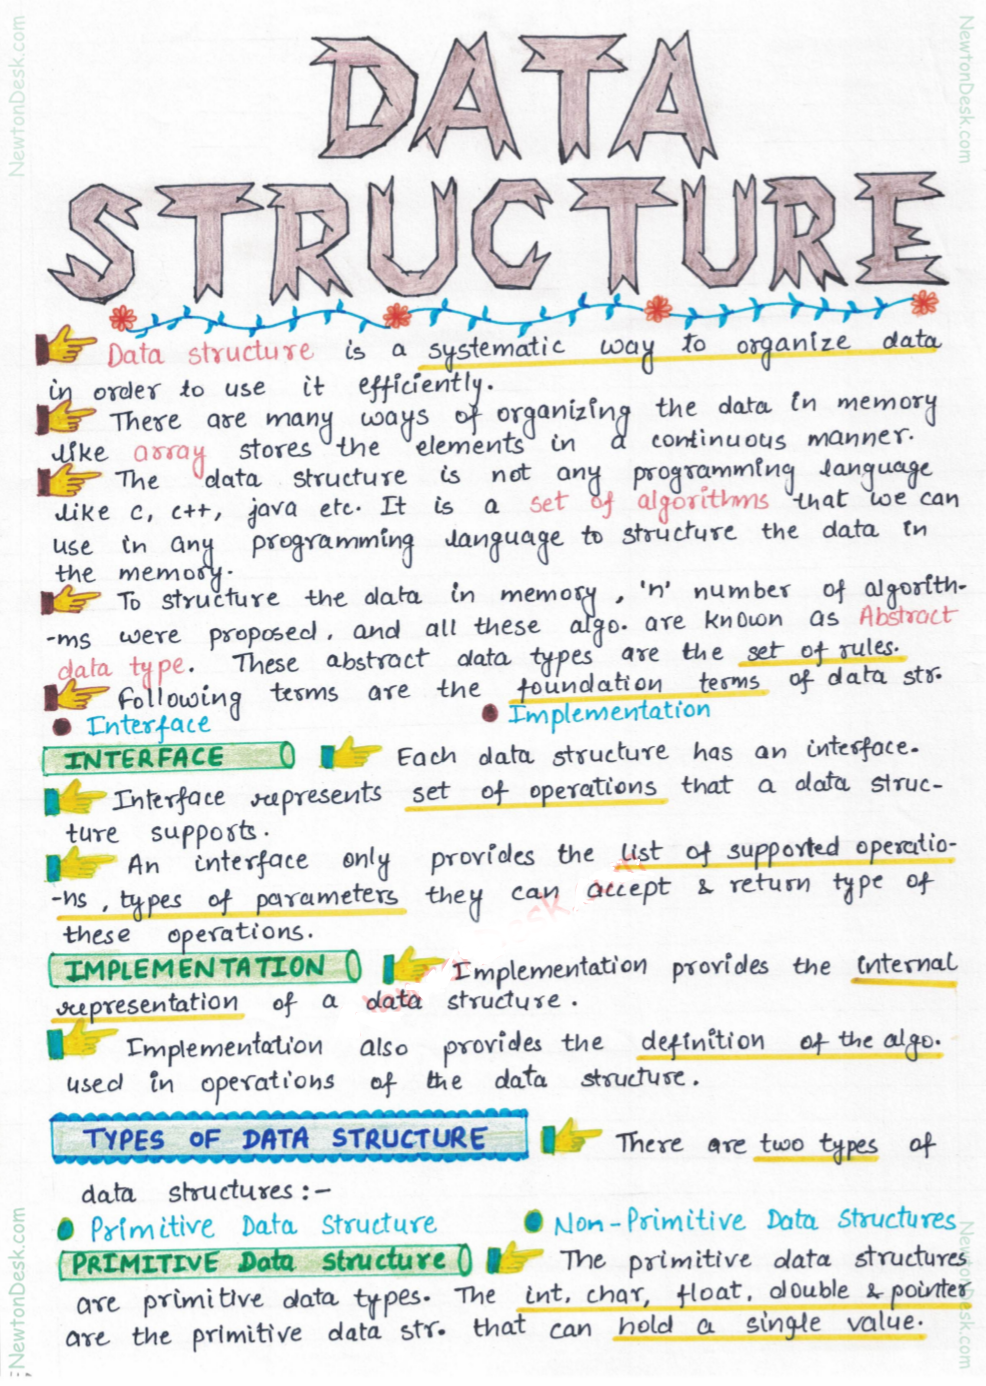 NewtonDesk.com
NewtonDesk.com
DATA
STRUCTURE
Data structure is a systematic way to organize data
in order to use it efficiently.
There are many ways of organizing the data in memory
like array stores the elements in a continuous manner.
The data structure is not any programming language
like C, C++, java etc. It is a set of algorithms that we can
use in any programming language to structure the data in
the memory.
To structure the data in memory, 'n' number of algorith-
-ms were proposed, and all these algo. are known as Abstract
data type. These abstract data types are the set of rules.
Following terms are the foundation terms of data str.
Interface Implementation
INTERFACE Each data structure has an interface.
Interface represents set of operations that a data struc-
ture supports.
An interface only provides the list of supported operatio-
-ns, types of parameters they can accept & return type of
these operations.
IMPLEMENTATION Implementation provides the internal
representation of a data structure.
Implementation also provides the definition of the algo.
used in operations of the data structure.
TYPES OF DATA STRUCTURE There are two types of
data structures:-
Primitive Data Structure Non-Primitive Data Structures
PRIMITIVE Data Structure The primitive data structures
are primitive data types. The int, char, float, double & pointer
are the primitive data str. that can hold a single value.
NewtonDesk.com
NewtonDesk.com